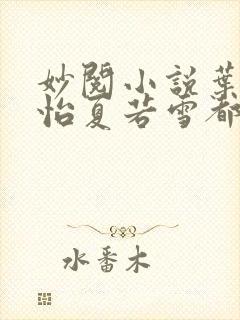 妙閱小説葉
怡夏若雪都
水番木